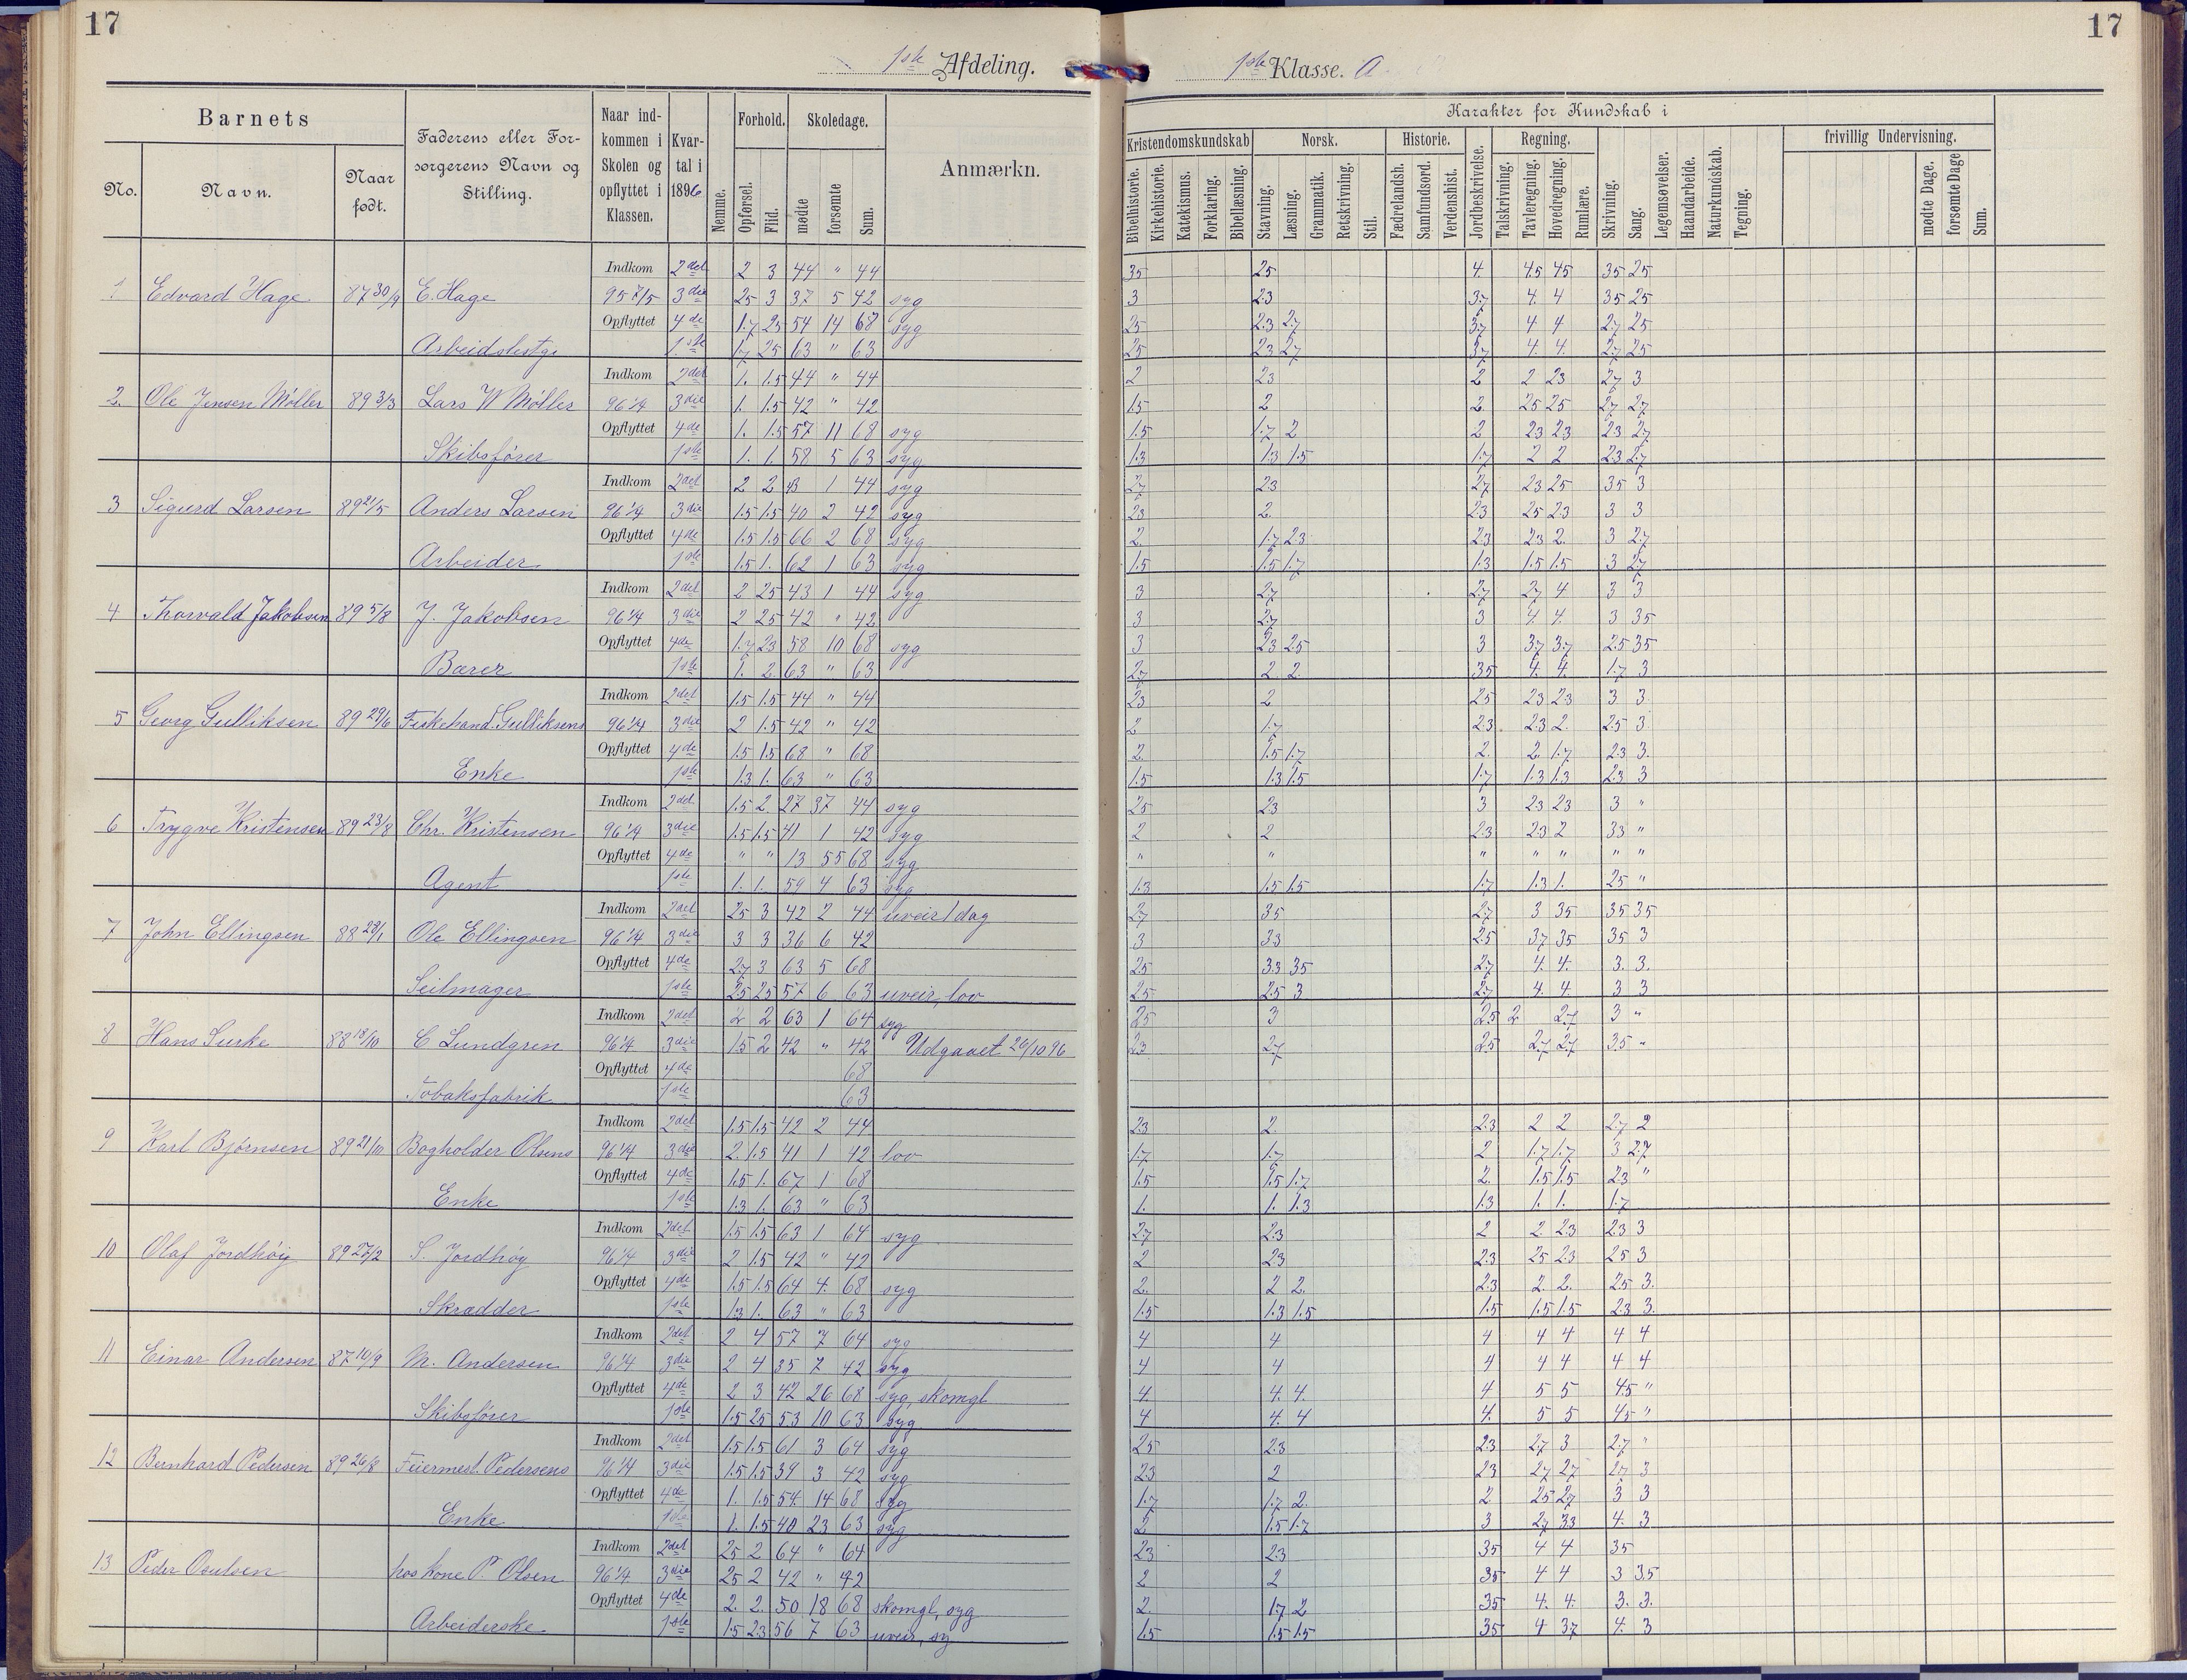 17
17
1ste Afdeling.
1ste Klasse. A.
Barnets
No.
Navn.
Naar født.
Faderens eller Forsørgerens Navn og Stilling.
Naar indkommen i Skolen og opflyttet i Klassen.
Kvartal i 1896
Nemme.
Forhold.
Opførsel.
Flid.
Skoledage.
mødte
forsømte
Sum.
Anmærkn.
Karakter for Kundskab i
Kristendomskundskab
Bibelhistorie.
Kirkehistorie.
Katekismus.
Forklaring.
Bibellæsning.
Norsk.
Stavning.
Læsning.
Grammatik.
Retskrivning.
Stil.
Historie.
Fædrelandsh.
Samfundsord.
Verdenshist.
Jordbeskrivelse.
Regning.
Talskrivning.
Tavleregning.
Hovedregning.
Rumlære.
Skrivning.
Sang.
Legemsøvelser.
Haandarbeide.
Naturkundskab.
Tegning.
frivillig Undervisning.
mødte Dage.
forsømte Dage
Sum.
Indkom 2det 2 3 44 " 44 35 25 4. 4.5 45 35 25
1 Edvard Hage 87 30/9 E. Hage 95 7/5 3die 25 3 37 5 42 syg 3 2.3 3.7 4. 4 35 25
Opflyttet 4de 1.7 25 54 14 68 syg 25 2.3 2.7 3.7 4 4 2.7 25
1ste 1.7 25 63 " 63 25 23 27 3.7 4. 4. 2.7 25
Indkom 2det 1. 1.5 44 " 44 2 23 2 2 23 27 3
2. Ole Jensen Møller 89 3/3 Lars W Møller 96 1/4 3die 1. 1.5 42 " 42 1.5 2 2. 25 25 27 27
Opflyttet 4de 1. 1.5 57 11 68 syg 1.5 1.7 2 2 23 23 23 27
Skibsfører 1ste 1. 1. 58 5 63 syg 1.3 1.3 1.5 1.7 2 2 23 2.7
Indkom 2det 2 2 43 1 44 syg 27 23 27 23 25 35 3
3 Sigurd Larsen 89 21/5 Anders Larsen 96 1/4 3die 1.5 1.5 40 2 42 syg 23 2. 23 25 23 3 3
Opflyttet 4de 1.5 1.5 66 2 68 syg 2. 1.7 23 23 23 2. 3 2.7
Arbeider 1ste 1.5 1. 62 1 63 syg 1.5 1.5 1.7 1.3 1.5 1.5 3 27
Indkom 2det 2 25 43 1 44 syg 3 27 2.7 27 4 3 3
4 Thorvald Jakobsen 89 5/8 J. Jakobsen 96 1/4 3die 2 25 42 " 42 3 27 3 4. 4. 3 35
Opflyttet 4de 1.7 23 58 10 68 syg 3 23 25 3 3.7 3.7 2.5 35
Bærer 1ste 1. 2. 63 " 63 2.7 2. 2. 35 4. 4. 1.7 3
Indkom 2det 1.5 1.5 44 " 44 23 2 25 23 23 3 3.
5 Georg Gulliksen 89 29/6 Fiskehand. Gulliksens 96 1/4 3die 2 1.5 42 " 42 2 1.7 2.3 2.3 2. 2.5 3.
Opflyttet 4de 1.5 1.5 68 " 68 2. 1.5 1.7 2. 2. 1.7 2.3 3.
Enke 1ste 1.3 1. 63 " 63 1.5 1.3 1.5 1.7 1.3 1.3 2.3 3
Indkom 2det 1.5 2 27 37 44 syg 25 23 3 23 23 3 "
6 Trygve Kristensen 89 23/8 Chr. Kristensen 96 1/4 3die 1.5 1.5 41 1 42 syg 2 2 23 23 2 33 "
Opflyttet 4de " " 13 55 68 syg " " " " " " "
Agent 1ste 1. 1. 59 4 63 syg 1.3 1.5 1.5 1.7 1.3 1. 25 "
Indkom 2det 25 3 42 2 44 uveir 1 dag 27 35 27 3 35 35 35
7 John Ellingsen 88 29/1 Ole Ellingsen 96 1/4 3die 3 3 36 6 42 3 33 25 37 35 35 3
Opflyttet 4de 2.7 3 63 5 68 25 33 35 27 4. 4. 3. 3.
Seilmager 1ste 25 25 57 6 63 uveir, lov 25 2.5 3 27 4. 4 3 3
Indkom 2det 2 2 63 1 64 syg 25 3 25 2 27 3 "
8 Hans Surke 88 18/10 C Lundgren 96 1/4 3die 1.5 2 42 " 42 Udgaaet 26/10 96 23 27 25 27 27 35 "
Opflyttet 4de 68
Tobaksfabrik 1ste 63
Indkom 2det 1.5 1.5 42 2 44 23 2. 2.3 2 2 2.7 2
9 Karl Bjørnsen 89 21/10 Bogholder Olsens 96 1/4 3die 2. 1.5 41 1 42 lov 1.7 1.7 2 1.7 1.7 3 27
Opflyttet 4de 1.5 1. 67 1 68 1.5 1.5 1.7 2. 1.5 1.5 23 "
Enke 1ste 1.3 1. 63 " 63 1. 1. 1.3 1.3 1. 1. 1.7
Indkom 2det 1.5 1.5 63 1 64 syg 2.7 2.3 2 2 23 23 3
10 Olaf Jordhøy 89 27/2 S. Jordhøy 96 1/4 3die 2 1.5 42 " 42 2 23 2.3 25 23 25 3
Opflyttet 4de 1.5 1.5 64 4. 68 syg 2. 2 2. 2.3 2. 2. 2.5 3.
Skrædder 1ste 1.3 1. 63 " 63 1.5 1.3 1.5 1.5 1.5 1.5 23 3.
Indkom 2det 2 4 57 7 64 syg 4 4 4 4 4 4 4
11 Einar Andersen 87 10/9 M. Andersen 96 1/4 3die 2 4 35 7 42 syg 4 4 4 4 4 4 4
Opflyttet 4de 2 3 42 26 68 syg, skomgl 4. 4. 4. 4 5 5 45 "
Skibsfører 1ste 1.5 25 53 10 63 syg 4 4. 4 4. 5 5 45 "
Indkom 2det 1.5 1.5 61 3 64 syg 25 2.3 2.3 2.7 3 2.7 "
12 Bernhard Pedersen 89 26/8 Feiermest. Pedersens 96 1/4 3die 1.5 1.5 39 3 42 syg 23 2 23 27 27 27 3
Opflyttet 4de 1. 1.5 54. 14 68 syg 1.7 1.7 2. 2 25 27 3 3
Enke 1ste 1. 1.5 40 23 63 syg 2 1.5 1.7 3 27 33 4. 3
Indkom 2det 25 2 64 " 64 23 2.3 35 4 4 35
13 Peder Osulsen hos Kone P. Olsen 96 1/4 3die 25 2 42 " 42 2 2 35 4 4 3 3.5
Opflyttet 4de 2. 2. 50 18 68 skomgl, syg 2. 1.7 2 35 4. 4. 3. 3.
Arbeiderske 1ste 1.5 2.3 56 7 63 uveir, sy 1.5 1.5 1.5 35 4 37 4. 3